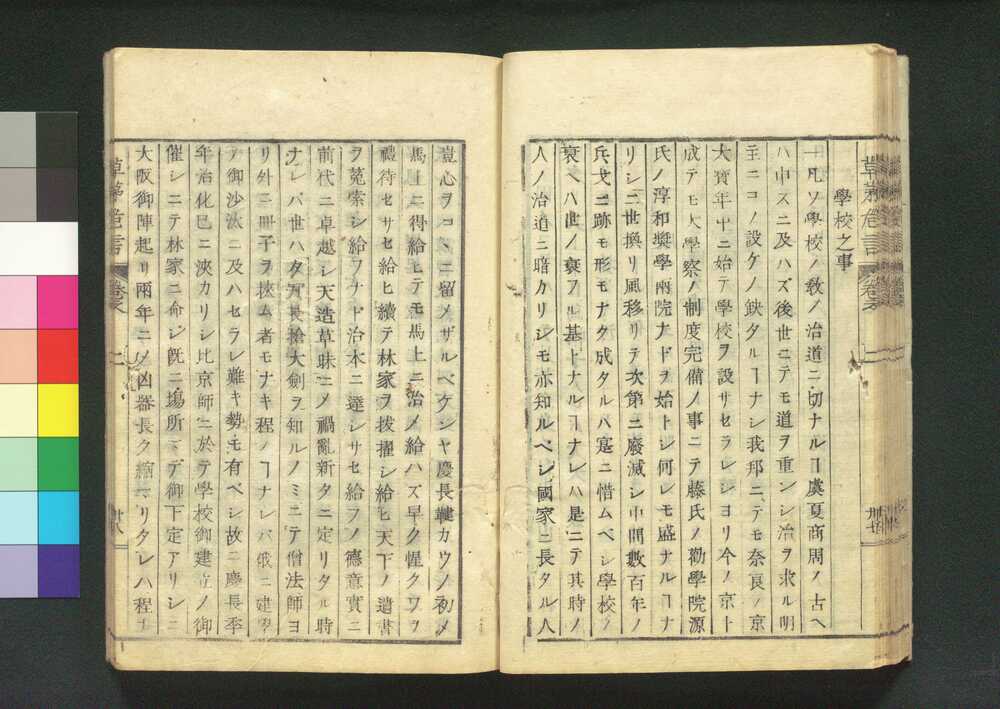 學校之事
一凡ソ學校ノ教ノ治道ニ切ナルヿ虞夏商周ノ古ヘ
ハ申スニ及ハズ後世ニテモ道ヲ重ンシ治ヲ求ル明
主ニコノ設ケノ缺タルヿナシ我邦ニテモ奈良ノ京
大寳年中ニ始テ學校ヲ設サセラレシヨリ今ノ京ト
成テモ大學寮ノ制度完備ノ事ニテ藤氏ノ勸學院源
氏ノ淳和奬學兩院ナドヲ始トシ何レモ盛ナルヿナ
リシニ世換リ風移リテ次第ニ廢滅シ中間數百年ノ
兵戈ニ跡モ形モナク成タルハ寔ニ惜ムベシ學校ノ
衰ヘハ世ノ衰フル基トナルヿナレハ是ニテ其時ノ
人ノ治道ニ暗カリシモ亦知ルベシ國家ニ長タル人
豈心ヲコヽニ留メザルベケンヤ慶長韃カウノ初メ
馬上ニ得給ヒテモ馬上ニ治メ給ハズ早ク惺タワヲ
禮待セサセ給ヒ續テ林家ヲ拔擢シ給ヒ天下ノ遺書
ヲ蒐索シ給フナド治本ニ達シサセ給フノ德意實ニ
前代ニ卓越シ天造草昧ニメ禍亂新タニ定リタル時
ナレバ世ハタヾ長槍大劍ヲ知ルノミニテ僧法師ヨ
リ外ニ冊子ヲ挾ム者モナキ程ノヿナレバ俄ニ建學
ノ御沙汰ニ及ハセラレ難キ勢モ有ベシ故ニ慶長季
年治化已ニ浹カリシ比京師ニ於テ學校御建立ノ御
催シニテ林家ニ命シ既ニ塲所マデ御下定アリシニ
大阪御陣起リ兩年ニメ凶器長ク縮マリタレハ程ナ
草茅危言
卷之
二